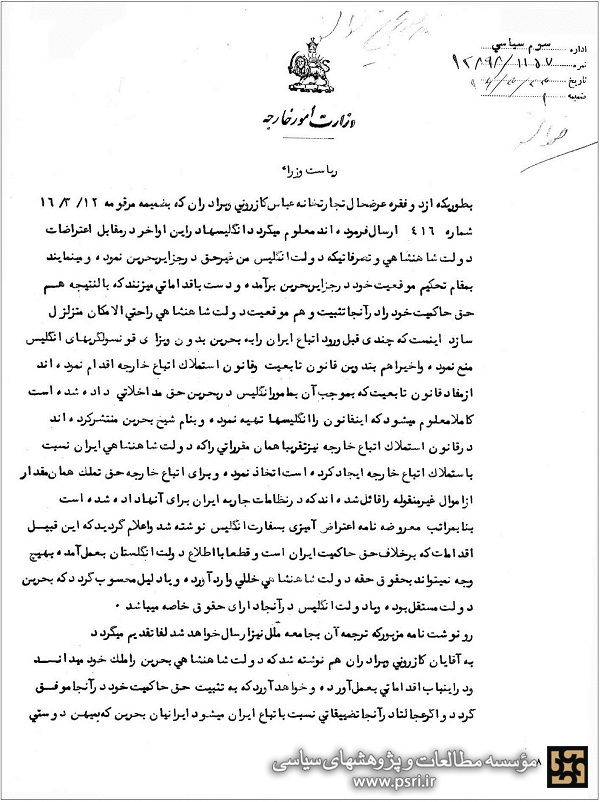 اداره سوم سیاسی
نمره ۱۲۸۹۸/۱۱۵۷
تاریخ
ضمیمه ۲
وزارت امور خارجه
ریاست وزراء
بطوریکه از دو فقره عرضحال تجارتخانه عباس کازرونی وبرادران که بضمیمه مرقومه ۱۲/ ۳/ ۱۶
شماره ۴۱۶ ارسال فرموده اند معلوم میگردد انگلیسها در این اواخر در مقابل اعتراضات
دولت شاهنشاهی و تصرفاتیکه دولت انگلیس من غیر حق در جزایر بحرین نموده و مینمایند
بمقام تحکیم موقعیت خود در جزایر بحرین برآمده و دست باقداماتی میزنند که بالنتیجه هم
حق حاکمیت خود را در آنجا تثبیت و هم موقعیت دولت شاهنشاهی را حتی الامکان متزلزل
سازد اینست که چندی قبل ورود اتباع ایران رابه بحرین بدون ویزای قونسولگریهای انگلیس
منع نموده واخیراهم بتدوین قانون تابعیت وقانون استملاک اتباع خارجه اقدام نموده اند
از مفاد قانون تابعیت که بموجب آن بمامور انگلیس در بحرین حق مداخلاتی داده شده است
کاملا معلوم میشود که اینقانون را انگلیسها تهیه نموده و بنام شیخ بحرین منتشر کرده اند
در قانون استملاک اتباع خارجه نیز تقریبا همان مقرراتی راکه دولت شاهنشاهی ایران نسبت
با ستملاک اتباع خارجه ایجاد کرده است اتخاذ نموده و برای اتباع خارجه حق تملک همان مقدار
از اموال غیر منقوله را قائل شده اند که در نظامات جاریه ایران برای آنها داده شده است
بنا بمراتب معروضه نامه اعتراض آمیزی بسفارت انگلیس نوشته شد واعلام گردید که این قبیل
اقدامات که بر خلاف حق حاکمیت ایران است و قطعا با اطلاع دولت انگلستان بعمل آمده بهیچ
وجه نمیتواند بحقوق حقه دولت شاهنشاهی خللی وارد آورده و یا دلیل محسوب گردد که بحرین
دولت مستقل بوده ویا دولت انگلیس در آنجا دارای حقوق خاصه میباشد ۰
رونوشت نامه مزبور که ترجمه آن بجامعه ملل نیز ارسال خواهد شد لفا تقدیم میگردد
به آقایان کازرونی وبرادران هم نوشته شد که دولت شاهنشاهی بحرین را ملک خود میدانند
ودر اینباب اقداماتی بعمل آورده و خواهد آورد که به تثبیت حق حاکمیت خود در آنجا موفق
گردد و اگر عجالتا در آنجا تضییقاتی نسبت با تباع ایران میشود ایرانیان بحرین که بمیهن دوستی
۸
مؤسسه مطالعات و پژوهشهای سیاسی
www.psri.ir